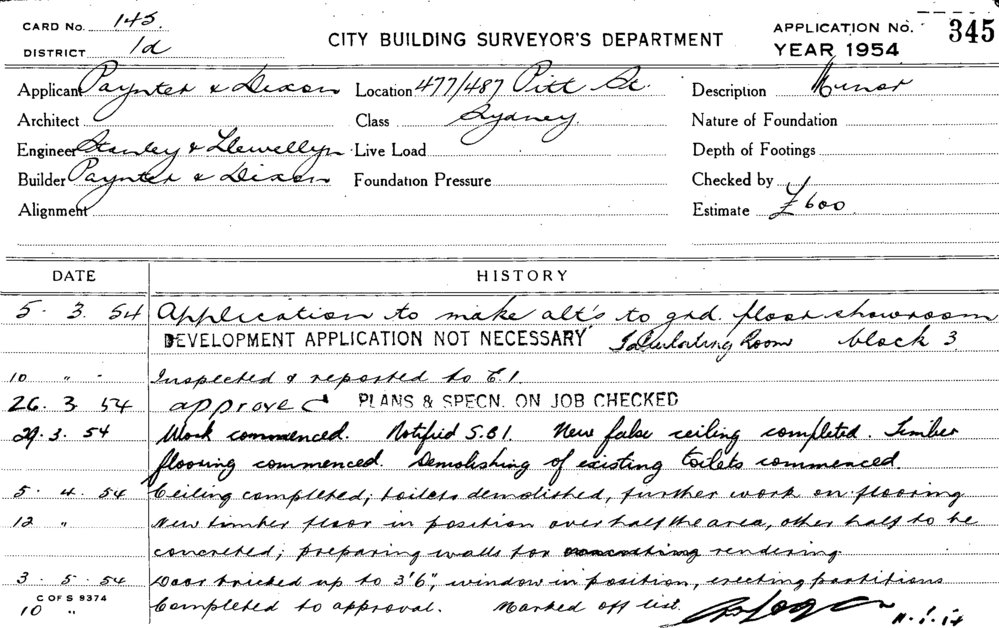 CARD No. 145.
DISTRICT 1d
CITY BUILDING SURVEYOR'S DEPARTMENT
APPLICATION No. 345
YEAR 1954
Applicant Paynter & Dixon Location 477/487 Pitt St. Description Minor
Architect Class Sydney. Nature of Foundation
Engineer Stanley & Llewellyn Live Load Depth of Footings
Builder Paynter & Dixon Foundation Pressure Checked by
Alignment Estimate £600
DATE HISTORY
5. 3. 54 Application to make alt's to grd. floor showroom
DEVELOPMENT APPLICATION NOT NECESSARY Tabulating Room block 3.
10 " - Inspected & reported to E.I.
26. 3. 54 approved PLANS & SPECN. ON JOB CHECKED
29. 3. 54 Work commenced. Notified S.B.I. New false ceiling completed. Timber
flooring commenced. Demolishing of existing toilets commenced.
5. 4. 54 Ceiling completed; toilets demolished, further work on flooring
12 " New timber floor in position over half the area, other half to be
concreted; preparing walls for rendering
3. 5. 54 Door bricked up to 3'6", window in position, erecting partitions
C OF S 9374
10 " Completed to approval. Marked off list.